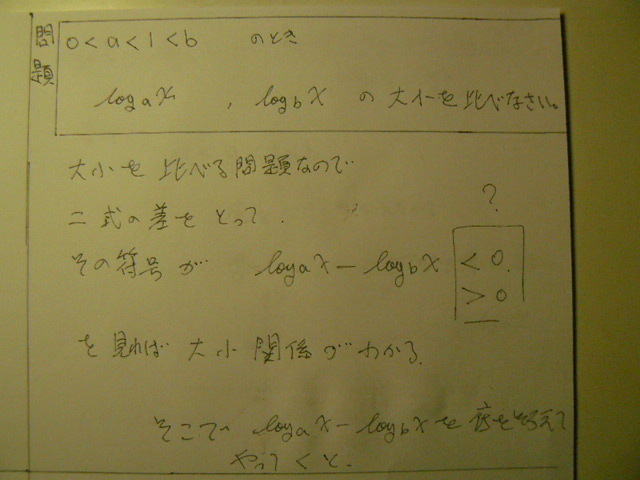 問題
0<a<1<b のとき
log_a x , log_b x の大小を比べなさい。
大小を比べる問題なので
二式の差をとって.
?
その符号が log_a x − log_b x < 0.
> 0
を見れば大小関係がわかる.
そこで log_a x − log_b x を
やってくと.